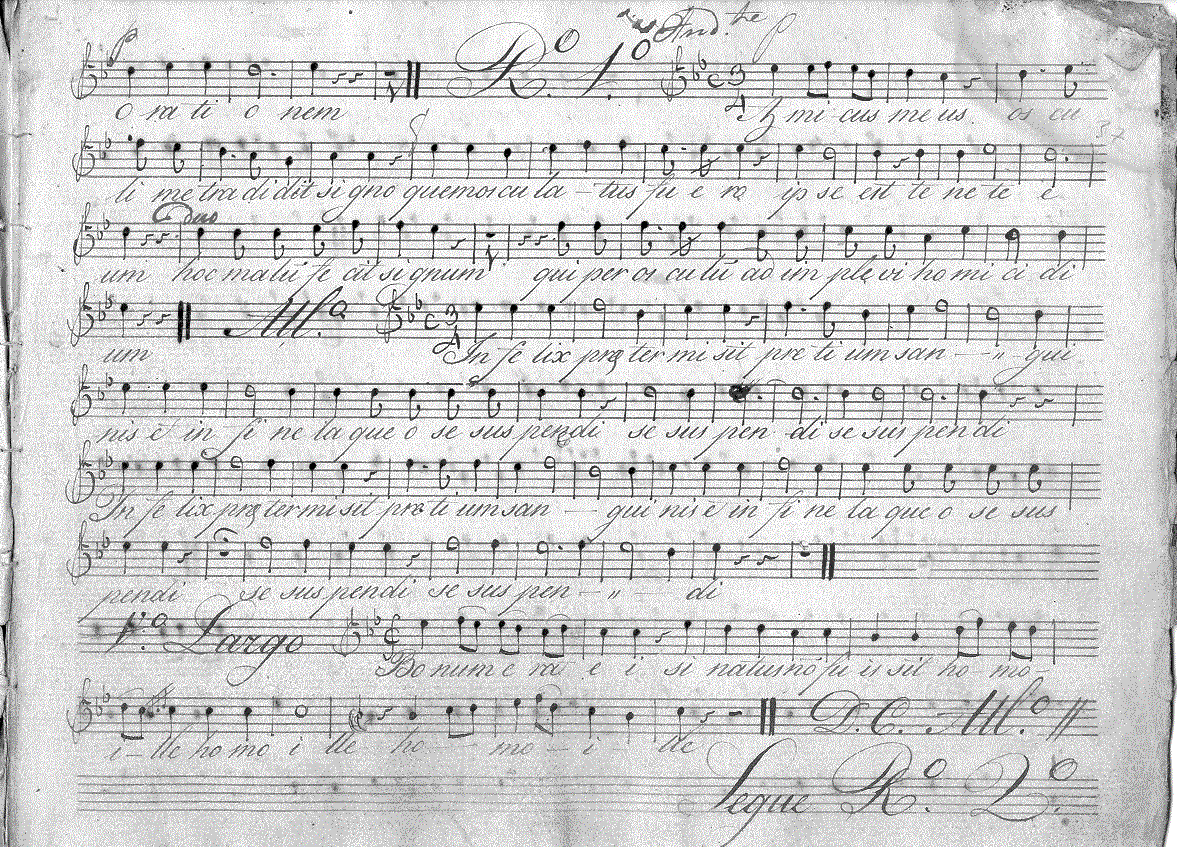 p R.º 1.º And.te p
o ra ti o nem A mi-cus me us os cu
li me tra di dit si gno quem os cu la-tus fu e ro ip se est te ne te e
Duo
um hoc malū fe cit si gnum qui per os cu lū ad im ple vi ho mi ci di
All.º
um In fe lix prę ter mi sit pre ti um san - - " - gui
nis ē in fi ne la que o se sus pendi se sus pen di se sus pen di
In fe lix prę ter mi sit pre ti um san - - gui nis ē in fi ne la que o se sus
pendi se sus pendi se sus pen - " - di
Largo
Bo num e rat e i si natus nō fu is sit ho-mo-
D.C. All.º
i-lle ho mo i lle ho - mo - i - lle
Segue R.º 2.º